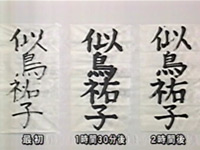 似鳥祐子
似鳥祐子
似鳥祐子
最初
1時間30分後
2時間後